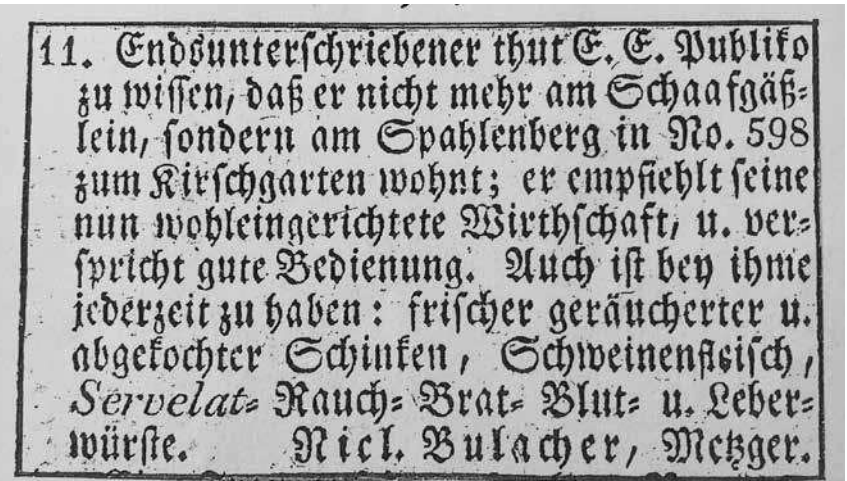 11. Endsunterschriebener thut E. E. Publiko
zu wissen, daß er nicht mehr am Schaafgäß-
lein, sondern am Spahlenberg in No. 598
zum Kirschgarten wohnt; er empfiehlt seine
nun wohleingerichtete Wirthschaft, u. ver-
spricht gute Bedienung. Auch ist bey ihme
jederzeit zu haben: frischer geräucherter u.
abgekochter Schinken, Schweinenfleisch,
Servelat- Rauch- Brat- Blut- u. Leber-
würste. Nicl. Bulacher, Metzger.